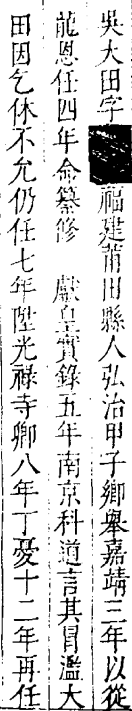 吳大田字福建莆田縣人弘治甲子鄉舉嘉靖三年以從
龍恩任四年命纂修 獻皇實錄五年南京科道言其冒濫大
田因乞休不允仍任七年陞光祿寺卿八年丁憂十二年再任